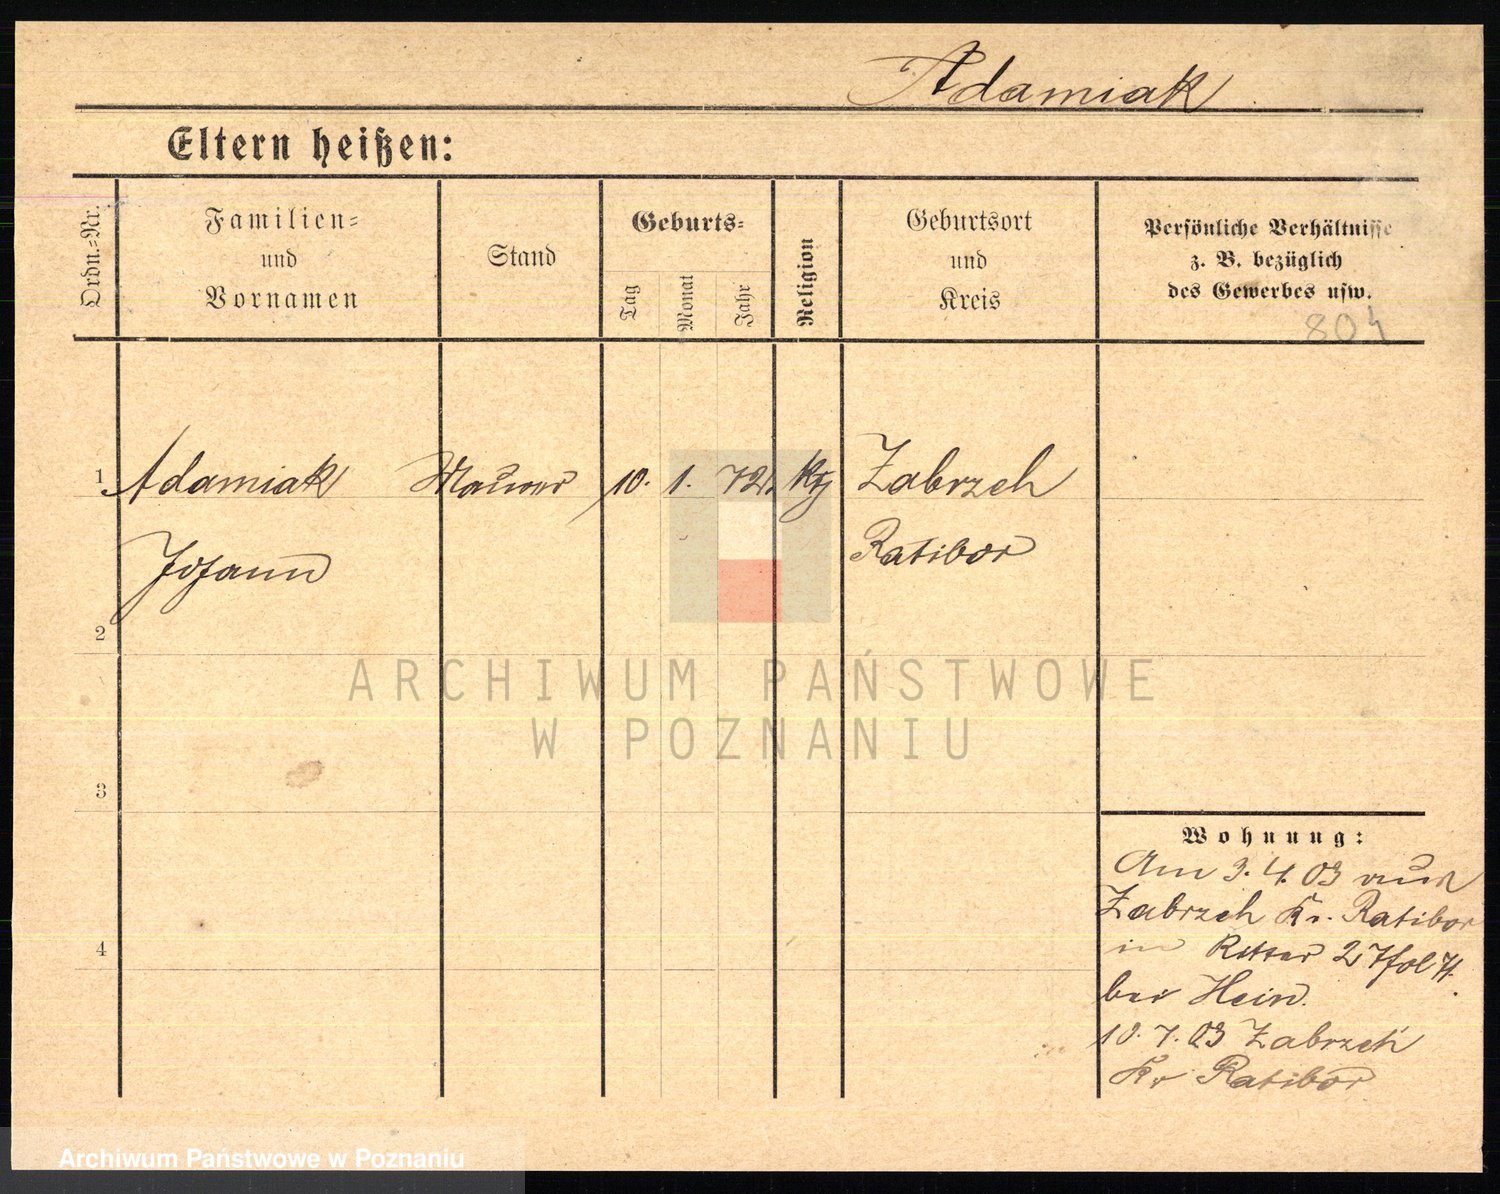 Adamiak
Eltern heißen:
Ordn.=Nr.
Familien=
und
Vornamen
Stand
Geburts=
Tag
Monat
Jahr
Religion
Geburtsort
und
Kreis
Persönliche Verhältnisse
z. B. bezüglich
des Gewerbes usw.
804
1 Adamiak Maurer 10. 1. 72. Kth Zabrzeh
Johann Ratibor
2
ARCHIWUM PAŃSTWOWE
W POZNANIU
3
Wohnung:
Am 3. 4. 03 aus
Zabrzeh Kr. Ratibor
in Ritter 27
4
bei Hein.
10. 7. 03 Zabrzeh
Kr Ratibor
Archiwum Państwowe w Poznaniu